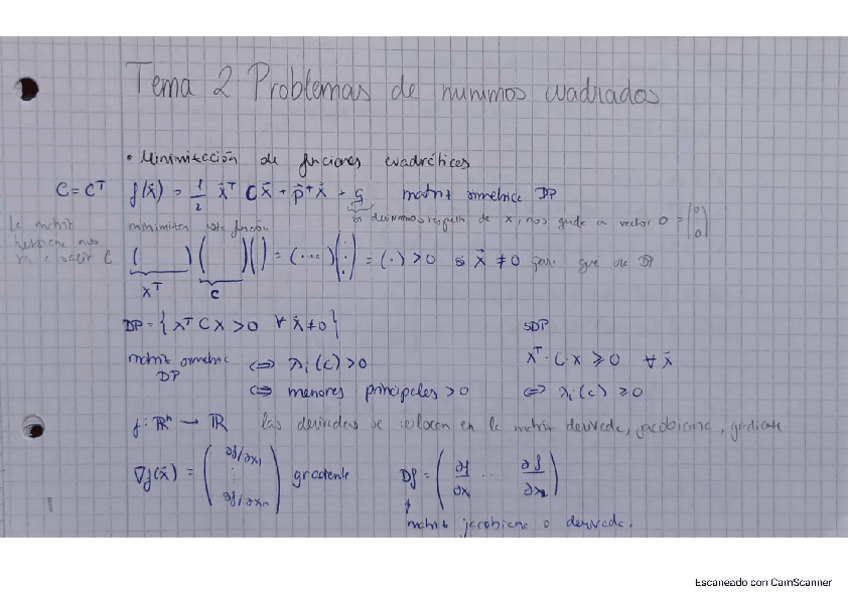 Tema 2 Problemas de mínimos cuadrados
• Minimización de funciones cuadráticas
C = Cᵀ f(x⃗) = 1/2 x⃗ᵀ C x⃗ + p⃗ᵀ x⃗ + q matriz simétrica DP
si derivamos respecto de x, nos queda a vector 0 = (0 : 0)
la matriz hessiana nos va a valer C
minimizar esta función
( ) ( ) ( ) = (...) (⋮) = (·) > 0 si x⃗ ≠ 0 para que de DP
xᵀ C
DP = { xᵀ C x > 0 ∀ x⃗ ≠ 0 }
SDP
matriz simétrica DP ⇔ λᵢ(c) > 0
xᵀ · C · x ⩾ 0 ∀ x⃗
⇔ menores principales > 0
⇔ λᵢ(c) ⩾ 0
f: ℝⁿ → ℝ las derivadas se colocan en la matriz derivada, jacobiana, gradiente
∇f(x⃗) = ( ∂f/∂x₁ ⋮ ∂f/∂xₙ ) gradiente
Df = ( ∂f/∂x ... ∂f/∂x )
matriz jacobiana o derivada.
Escaneado con CamScanner